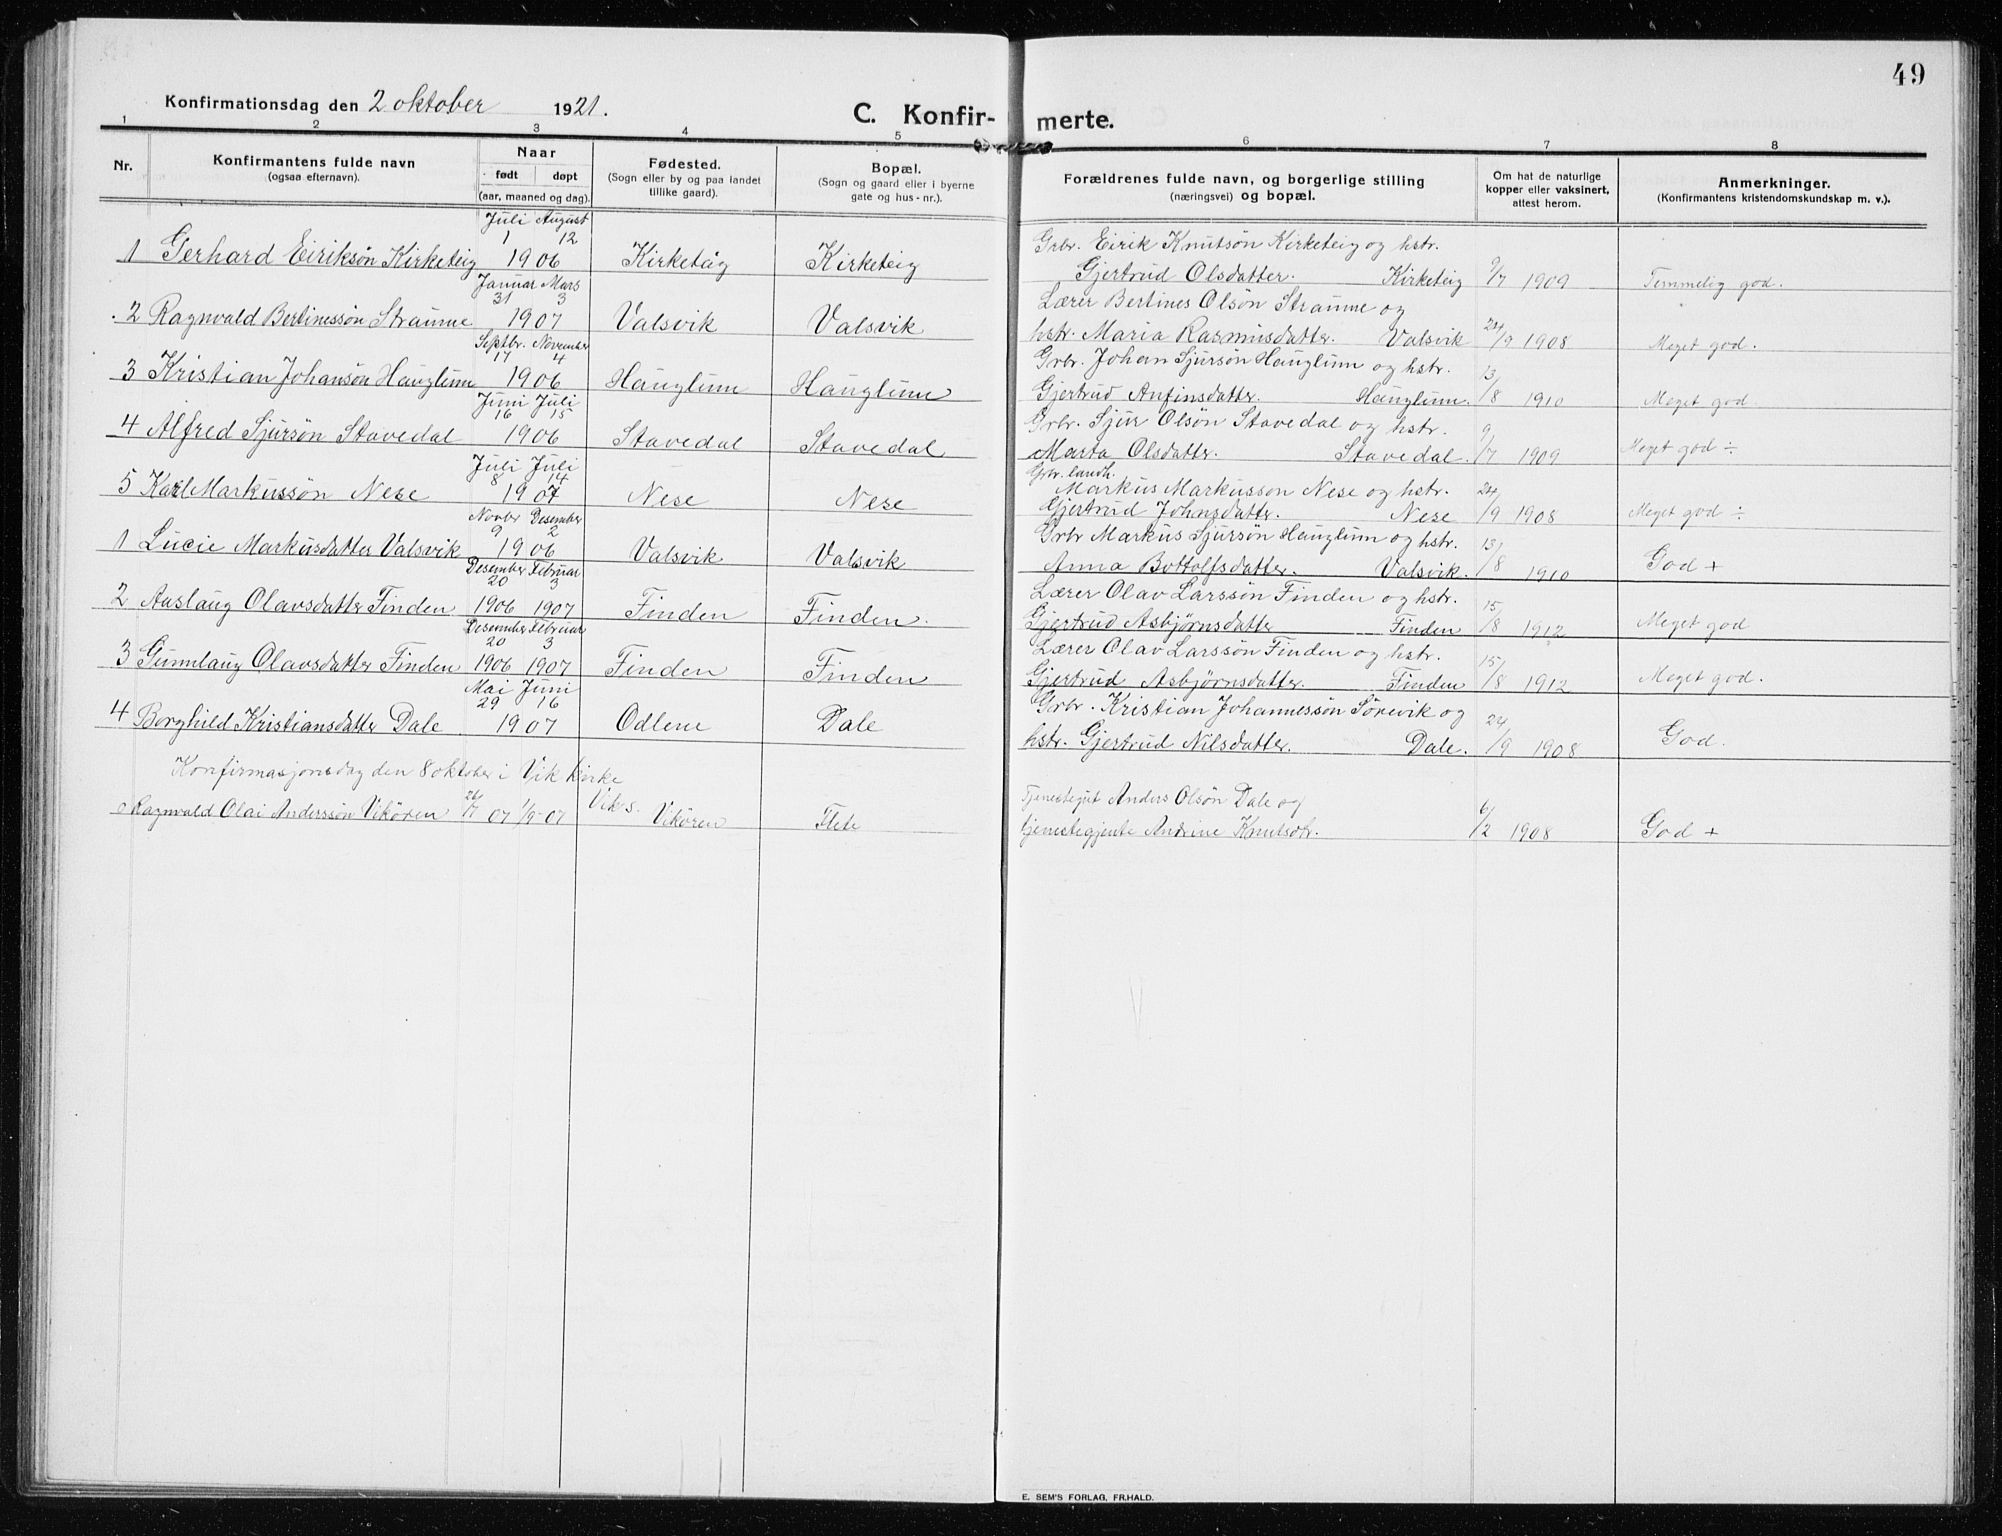 49
Konfirmationsdag den 2 oktober 1921.
C. Konfir- merte.
1 2 3 4 5 6 7 8
Nr.
Konfirmantens fulde navn
(ogsaa efternavn).
Naar
født døpt
(aar, maaned og dag).
Fødested.
(Sogn eller by og paa landet
tillike gaard).
Bopæl.
(Sogn og gaard eller i byerne
gate og hus-nr.).
Forældrenes fulde navn, og borgerlige stilling
(næringsvei) og bopæl.
Om hat de naturlige
kopper eller vaksinert,
attest herom.
Anmerkninger.
(Konfirmantens kristendomskundskap m. v.).
Juli August
1 12
Grbr. Eirik Knutsøn Kirketeig og hstr.
1 Gerhard Eiriksøn Kirketeig 1906 Kirketåg Kirketeig
Gjertrud Olsdatter. Kirketeig 9/7 1909 Temmelig god.
Januar Mars
31 3
Lærer Bertines Olsøn Straume og
2 Ragnvald Bertinessøn Straume 1907 Valsvik Valsvik
hstr. Maria Rasmusdatter. Valsvik 24/9 1908 Meget god.
Septbr. November
17 4
Grbr. Johan Sjursøn Hauglum og hstr.
3 Kristian Johansøn Hauglum 1906 Hauglum Hauglum
Gjertrud Anfinsdatter. Hauglum. 13/8 1910 Meget god.
Juni Juli
16 15
Grbr. Sjur Olsøn Stavedal og hstr.
4 Alfred Sjursøn Stavedal 1906 Stavedal Stavedal
Marta Olsdatter. Stavedal. 9/7 1909 Meget god ÷
Juli Juli
8 14
Grbr. landh.
Markus Markusson Nese og hstr.
5 Karl Markussøn Nese 1907 Nese Nese
Gjertrud Johnsdatter. Nese 24/9 1908 Meget god ÷
Novbr Desember
9 2
Grbr Markus Sjursøn Hauglum og hstr.
1 Lucie Markusdatter Valsvik 1906 Valsvik Valsvik
Anna Bottolfsdatter. Valsvik. 13/8 1910 God +
Desember Februar
20 3
Lærer Olav Larssøn Finden og hstr.
2 Aaslaug Olavsdatter Finden 1906 1907 Finden Finden.
Gjertrud Asbjørnsdatter Finden 15/8 1912 Meget god
Desember Februar
20 3
Lærer Olav Larssøn Finden og hstr.
3 Gunnlaug Olavsdatter Finden 1906 1907 Finden Finden
Gjertrud Asbjørnsdatter. Finden 15/8 1912 Meget god.
Mai Juni
29 16
Grbr. Kristian Johannessøn Sørevik og
4 Borghild Kristiansdatter Dale 1907 Odlene Dale
hstr. Gjertrud Nilsdatter. Dale. 24/9 1908 God.
Konfirmasjonsdag den 8 oktober i Vik kirke
Ragnvald Olai Anderssøn Vikøren 07 1/9-07 Vik s. Vikøren Flete
Tjenestegut Anders Olsøn Dale og
tjenestegjente Andrine Knutsdtr. 6/2 1908 God +
E. SEM'S FORLAG, FR.HALD.